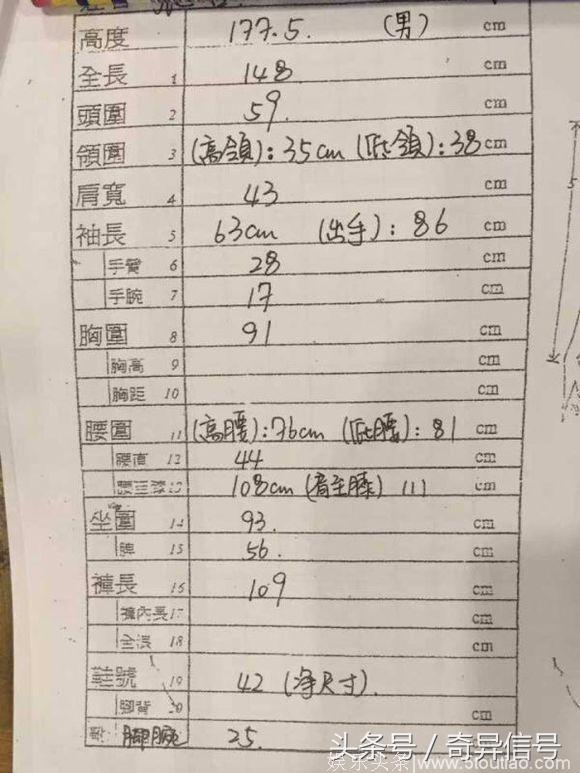 高度 177.5. (男) cm
全長 1 148 cm
頭圍 2 59. cm
領圍 3 (高領):35cm (低領):38 cm
肩寬 4 43 cm
袖長 5 63cm (出手):86 cm
手臂 6 28 cm
手腕 7 17 cm
胸圍 8 91 cm
胸高 9 cm
胸距 10 cm
腰圍 11 (高腰):76cm (低腰):81 cm
腰直 12 44 cm
腰至膝 13 108cm (肩至膝) 111 cm
坐圍 14 93. cm
脾 15 56. cm
褲長 16 109 cm
褲內長 17 cm
全浪 18 cm
鞋號 19 42 (淨尺寸).
腳背 20 cm
腳腕 25.
头条号 / 奇异信号
娱乐头条 www.51toutiao.com